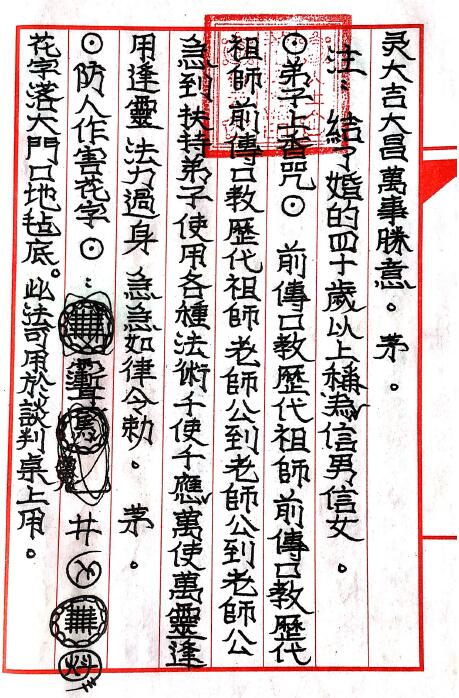 灵大吉大昌萬事勝意。茅。
注：結了婚的四十歲以上稱為信男信女。
⊙弟子上香咒⊙ 前傳口教歷代祖師前傳口教歷代
祖師前傳口教歷代祖師老師公到老師公到老師公
急到扶持弟子使用各種法術千使千應萬使萬靈逢
用逢靈 法力過身 急急如律令勅。茅。
⊙防人作害花字⊙：
井
花字落大門口地毡底。此法可用於談判桌上用。